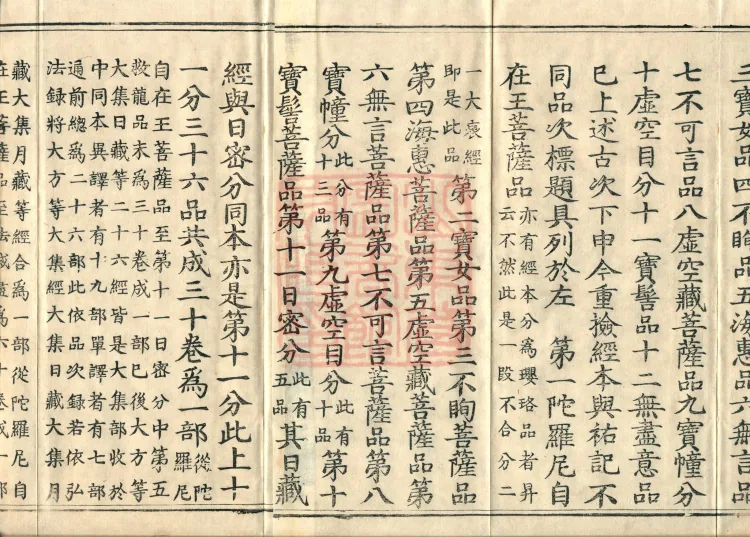 三寶女品四不眴品五海惠品六無言
七不可言品八虛空藏菩薩品九寶幢分
十虛空目分十一寶髻品十二無盡意品
已上述古次下申今重撿經本與祐記不
同品次標題具列於左 第一陀羅尼自
在王菩薩品亦有經本分爲瓔珞品者昇云不然此是一段不合分二
一大哀經即是此品第二寶女品第三不眴菩薩品
第四海惠菩薩品第五虛空藏菩薩品第
六無言菩薩品第七不可言菩薩品第八
寶幢分此分有十三品第九虛空目分此有十品第十
寶髻菩薩品第十一日密分此有五品其日藏
經與日密分同本亦是第十一分此上十
一分三十六品共成三十卷爲一部從陀羅尼
自在王菩薩品至第十一日密分中第五
救龍品末爲三十卷成一部已後大方等
大集日藏等二十六經皆是大集部收於
中同本異譯者有十九部單譯者有七部
遍前總爲二十六部此依品次録若依弘
法録將大方等大集經大集日藏大集月
藏大集月藏等經合爲一部從陀羅尼自
在王菩薩品至法滅盡爲六十卷成一部